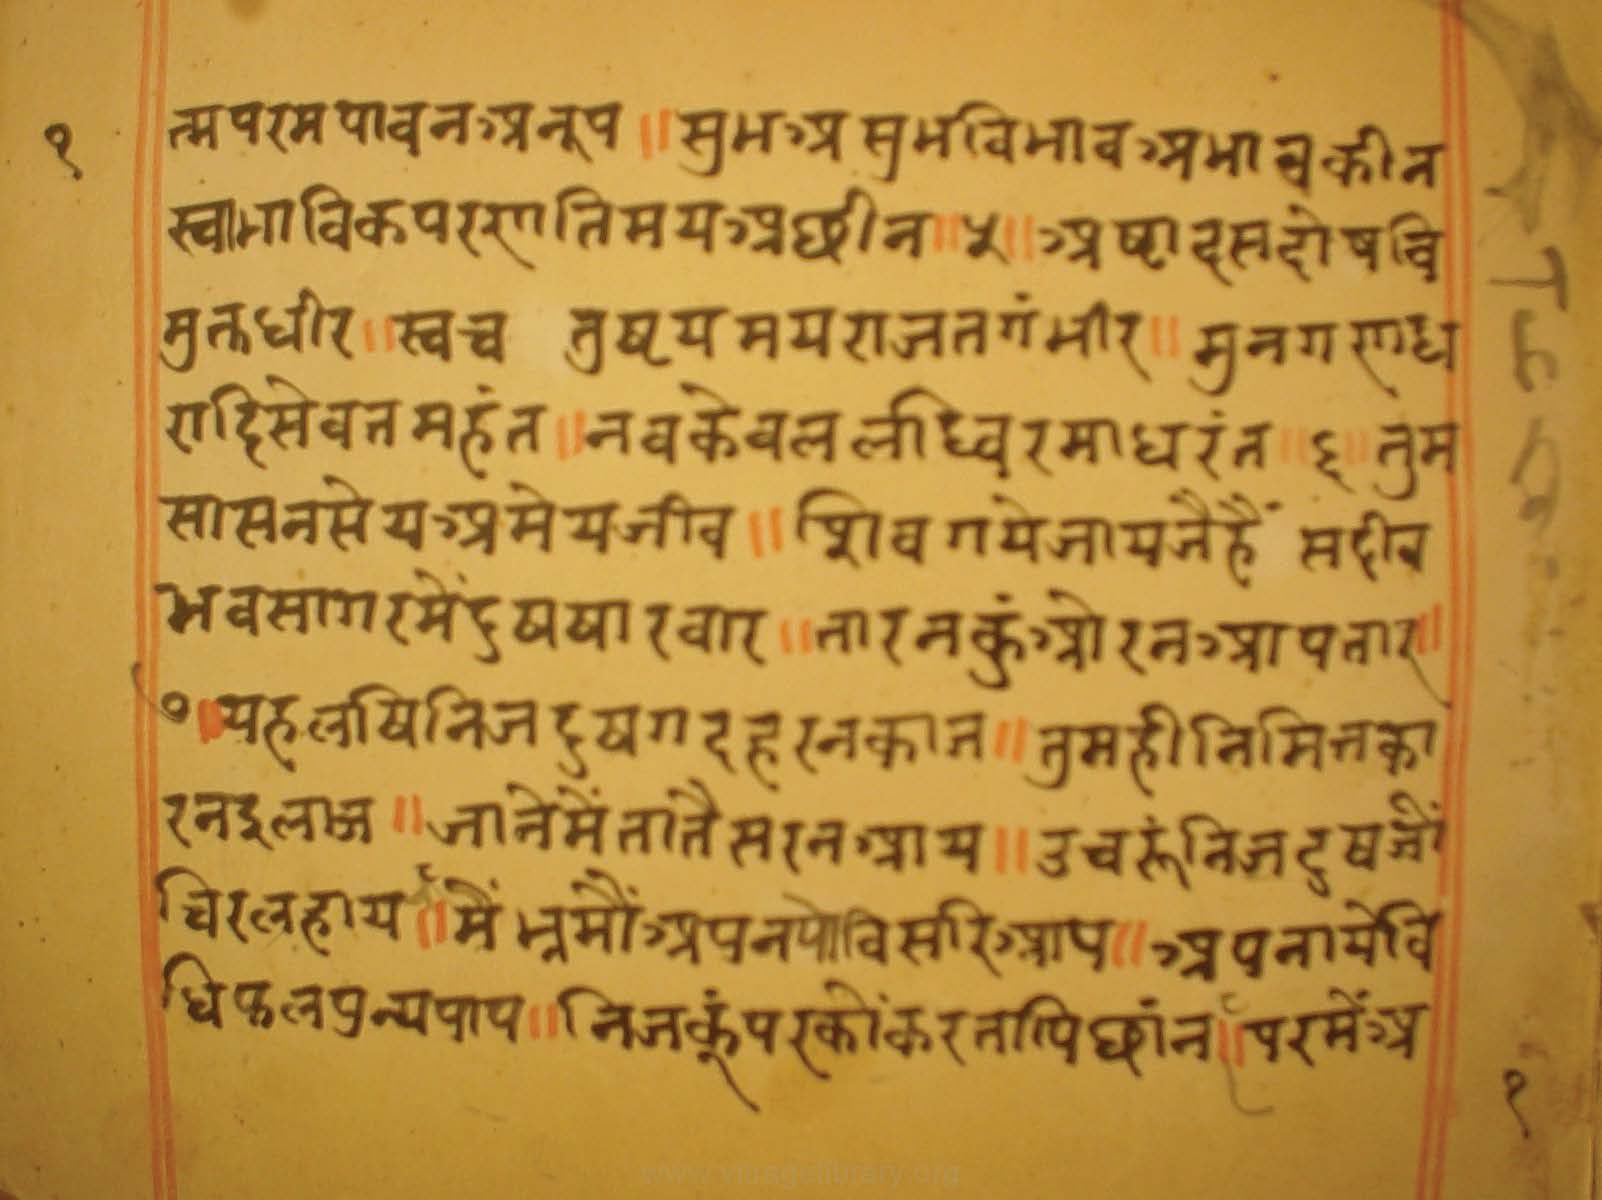 १
त्मपरमपावनअनूप ॥ सुभअसुभविभावअभावकीन
स्वाभाविकपरणतिमयअछीन ॥ ५ ॥ अष्टादसदोषवि
मुक्तधीर ॥ स्वच तुष्टयमयराजतगंभीर ॥ मुनगणध
रादिसेवतमहंत ॥ नवकेवललब्धिरमाधरंत ॥ ६ ॥ तुम
सासनसेयअमेयजीव ॥ शिवगयेजायजैहैं सदीव
भवसागरमेंदुषषारवार ॥ तारनकुंओरनआपतार ॥
७ ॥ यहलषिनिजदुषगदहरनकाज ॥ तुमहीनिमित्तका
रनइलाज ॥ जानेमैंतातैसरनआय ॥ उचरूंनिजदुषजौं
चिरलहाय ॥ मैं भ्रमौंअपनपोविसरिआप ॥ अपनायेवि
धिफलपुन्यपाप ॥ निजकूंपरकोंकरतापिछांन ॥ परमेंअ
१